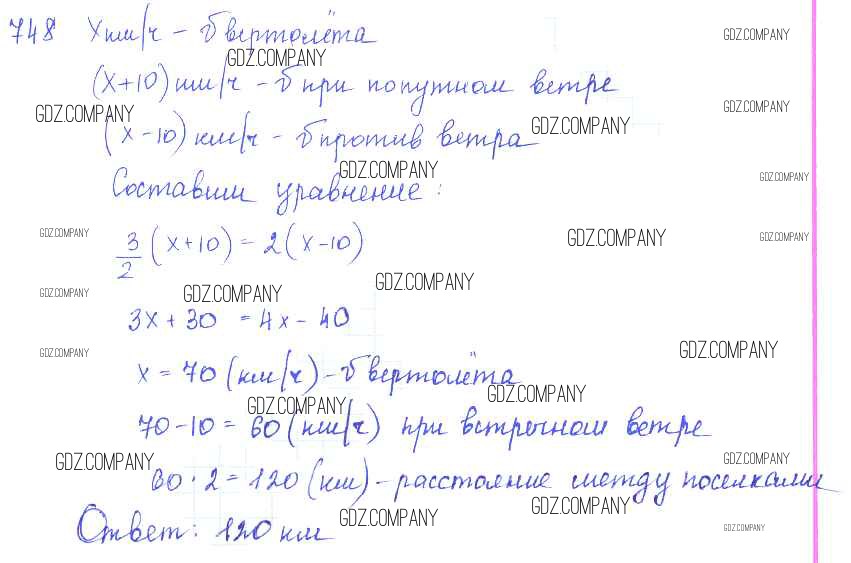 748 х км/ч - v вертолёта
GDZ.COMPANY GDZ.COMPANY
(х+10) км/ч - v при попутном ветре
GDZ.COMPANY GDZ.COMPANY
(х-10) км/ч - v против ветра
GDZ.COMPANY
GDZ.COMPANY GDZ.COMPANY
Составим уравнение:
GDZ.COMPANY GDZ.COMPANY GDZ.COMPANY
3/2 (х+10) = 2 (х-10)
GDZ.COMPANY GDZ.COMPANY GDZ.COMPANY
3х + 30 = 4х - 40
GDZ.COMPANY GDZ.COMPANY
х = 70 (км/ч) - v вертолёта
GDZ.COMPANY GDZ.COMPANY
70-10 = 60 (км/ч) при встречном ветре
GDZ.COMPANY GDZ.COMPANY
60 · 2 = 120 (км) - расстояние между поселками
GDZ.COMPANY GDZ.COMPANY
Ответ: 120 км
GDZ.COMPANY